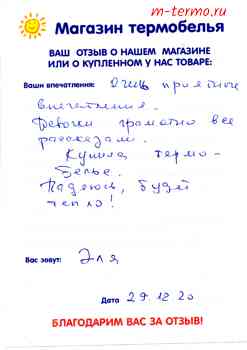 m-termo.ru
Магазин термобелья
ВАШ ОТЗЫВ О НАШЕМ МАГАЗИНЕ
ИЛИ О КУПЛЕННОМ У НАС ТОВАРЕ:
Ваши впечатления: Очень приятные
впечатления.
Девочки грамотно все
рассказали.
Купила термо-
белье.
Надеюсь, будет
тепло!
Вас зовут: Эля
Дата 29.12.20
БЛАГОДАРИМ ВАС ЗА ОТЗЫВ!